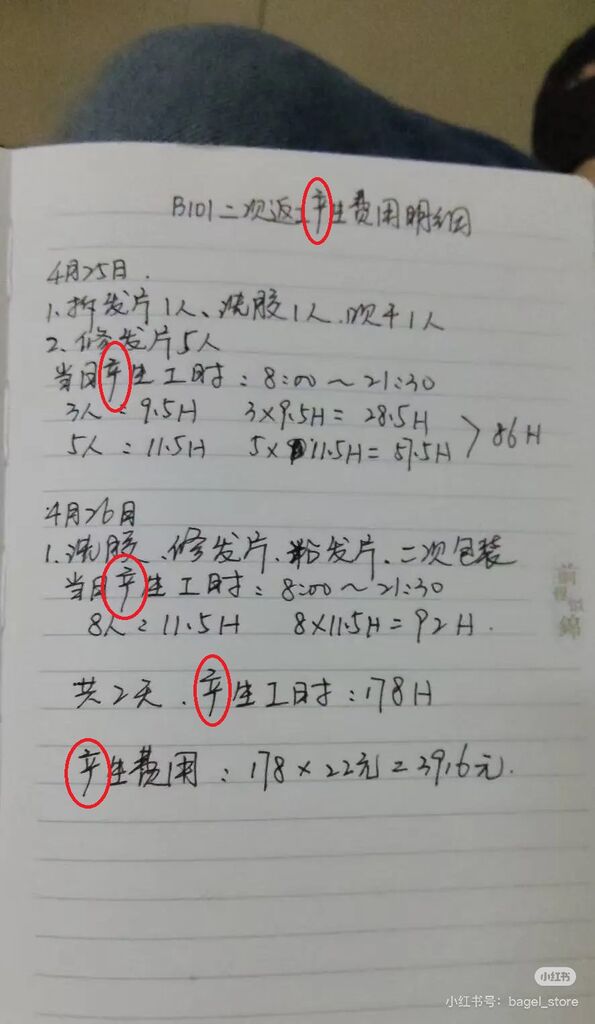 B101二次返工产生费用明细
4月25日.
1.拆发片1人、洗胶1人.吹干1人
2.修发片5人
当日产生工时:8:00~21:30
3人=9.5H 3×9.5H=28.5H
5人=11.5H 5×11.5H=57.5H
>86H
4月26日
1.洗胶、修发片、粘发片、二次包装
当日产生工时:8:00~21:30
8人=11.5H 8×11.5H=92H.
共2天.产生工时:178H
产生费用:178×22元=3916元.
前程似
錦
小红书
小红书号:bagel_store